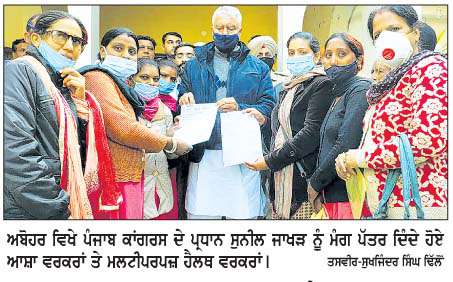 ਅਬੋਹਰ ਵਿਖੇ ਪੰਜਾਬ ਕਾਂਗਰਸ ਦੇ ਪ੍ਰਧਾਨ ਸੁਨੀਲ ਜਾਖੜ ਨੂੰ ਮੰਗ ਪੱਤਰ ਦਿੰਦੇ ਹੋਏ
ਆਸ਼ਾ ਵਰਕਰਾਂ ਤੇ ਮਲਟੀਪਰਪਜ਼ ਹੈਲਥ ਵਰਕਰਾਂ। ਤਸਵੀਰ-ਸੁਖਜਿੰਦਰ ਸਿੰਘ ਢਿੱਲੋਂ